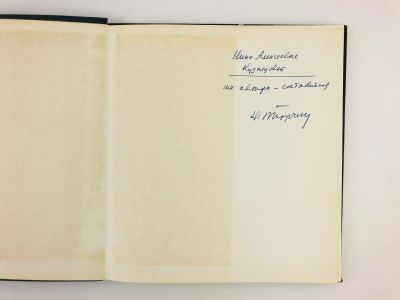 Нине Алексеевне
Кузнецовой
от автора – составителя